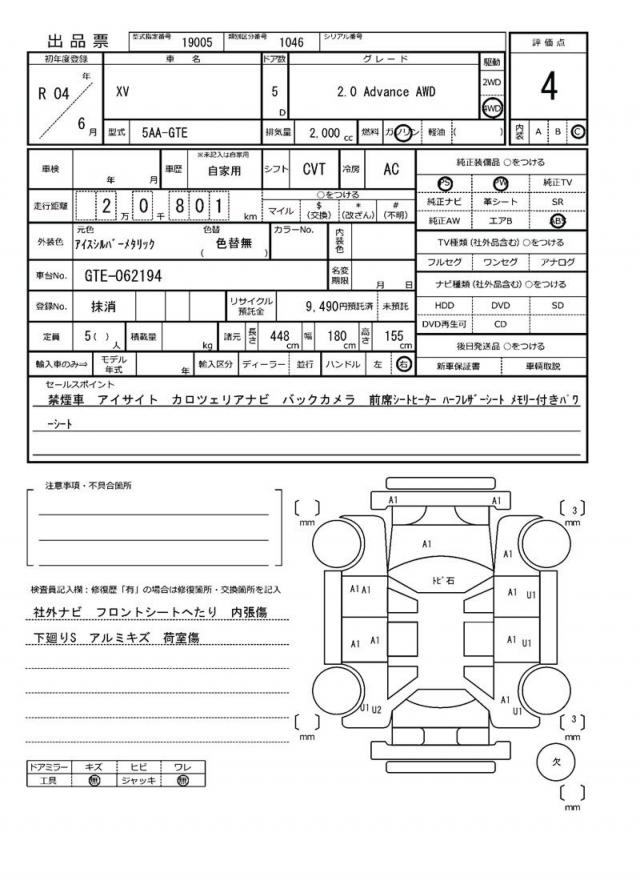 出品票 型式指定番号 19005 類別区分番号 1046 シリアル番号
初年度登録 車名 ドア数 グレード 駆動 評価点
R 04 年 6 月 XV 5 D 2.0 Advance AWD 2WD 4WD 4
型式 5AA-GTE 排気量 2,000 cc 燃料 ガソリン 軽油 ( ) 内装 A B C
車検 年 月 車歴 ※未記入は自家用 自家用 シフト CVT 冷房 AC 純正装備品 ○をつける
PS PW 純正TV
走行距離 2万0千801 km ○をつける
マイル $(交換) *(改ざん) #(不明)
純正ナビ 革シート SR
純正AW エアB ABS
外装色 元色 アイスシルバーメタリック 色替 ( 色替無 ) カラーNo. 内装色
TV種類(社外品含む) ○をつける
フルセグ ワンセグ アナログ
車台No. GTE-062194 名変期限 月 日
ナビ種類(社外品含む) ○をつける
登録No. 抹消 リサイクル預託金 9,490円預託済 未預託
HDD DVD SD
DVD再生可 CD
定員 5( )人 積載量 kg 諸元 長さ 448 cm 幅 180 cm 高さ 155 cm
後日発送品 ○をつける
輸入車のみ⇒ モデル年式 年 輸入区分 ディーラー 並行 ハンドル 左 右
新車保証書 車輌取説
セールスポイント
禁煙車 アイサイト カロツェリアナビ バックカメラ 前席シートヒーター ハーフレザーシート メモリー付きパワ
ーシート
注意事項・不具合箇所
検査員記入欄:修復歴「有」の場合は修復箇所・交換箇所を記入
社外ナビ フロントシートへたり 内張傷
下廻りS アルミキズ 荷室傷
ドアミラー キズ ヒビ ワレ
工具 無 ジャッキ 無
A1 A1
[ ] mm [ 3 ] mm
A1 A1
トビ石
A1 A1 A1 U1
A1 A1 A1 U1
U1 U2 A1 U1
[ ] mm [ 3 ] mm
欠
[ ] mm